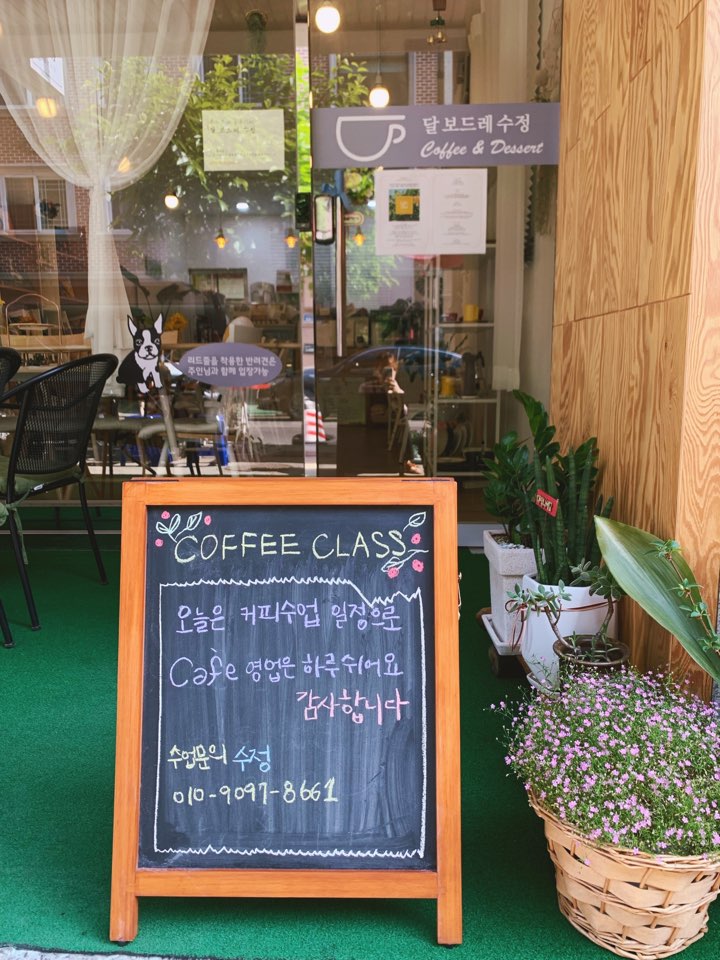 달 보드레 수정
Coffee & Dessert
달 보드레 수정
리드줄을 착용한 반려견은
주인님과 함께 입장가능
COFFEE CLASS
오늘은 커피수업 일정으로
Cafe 영업은 하루쉬어요
감사합니다
수업문의 수정
010-9097-8661